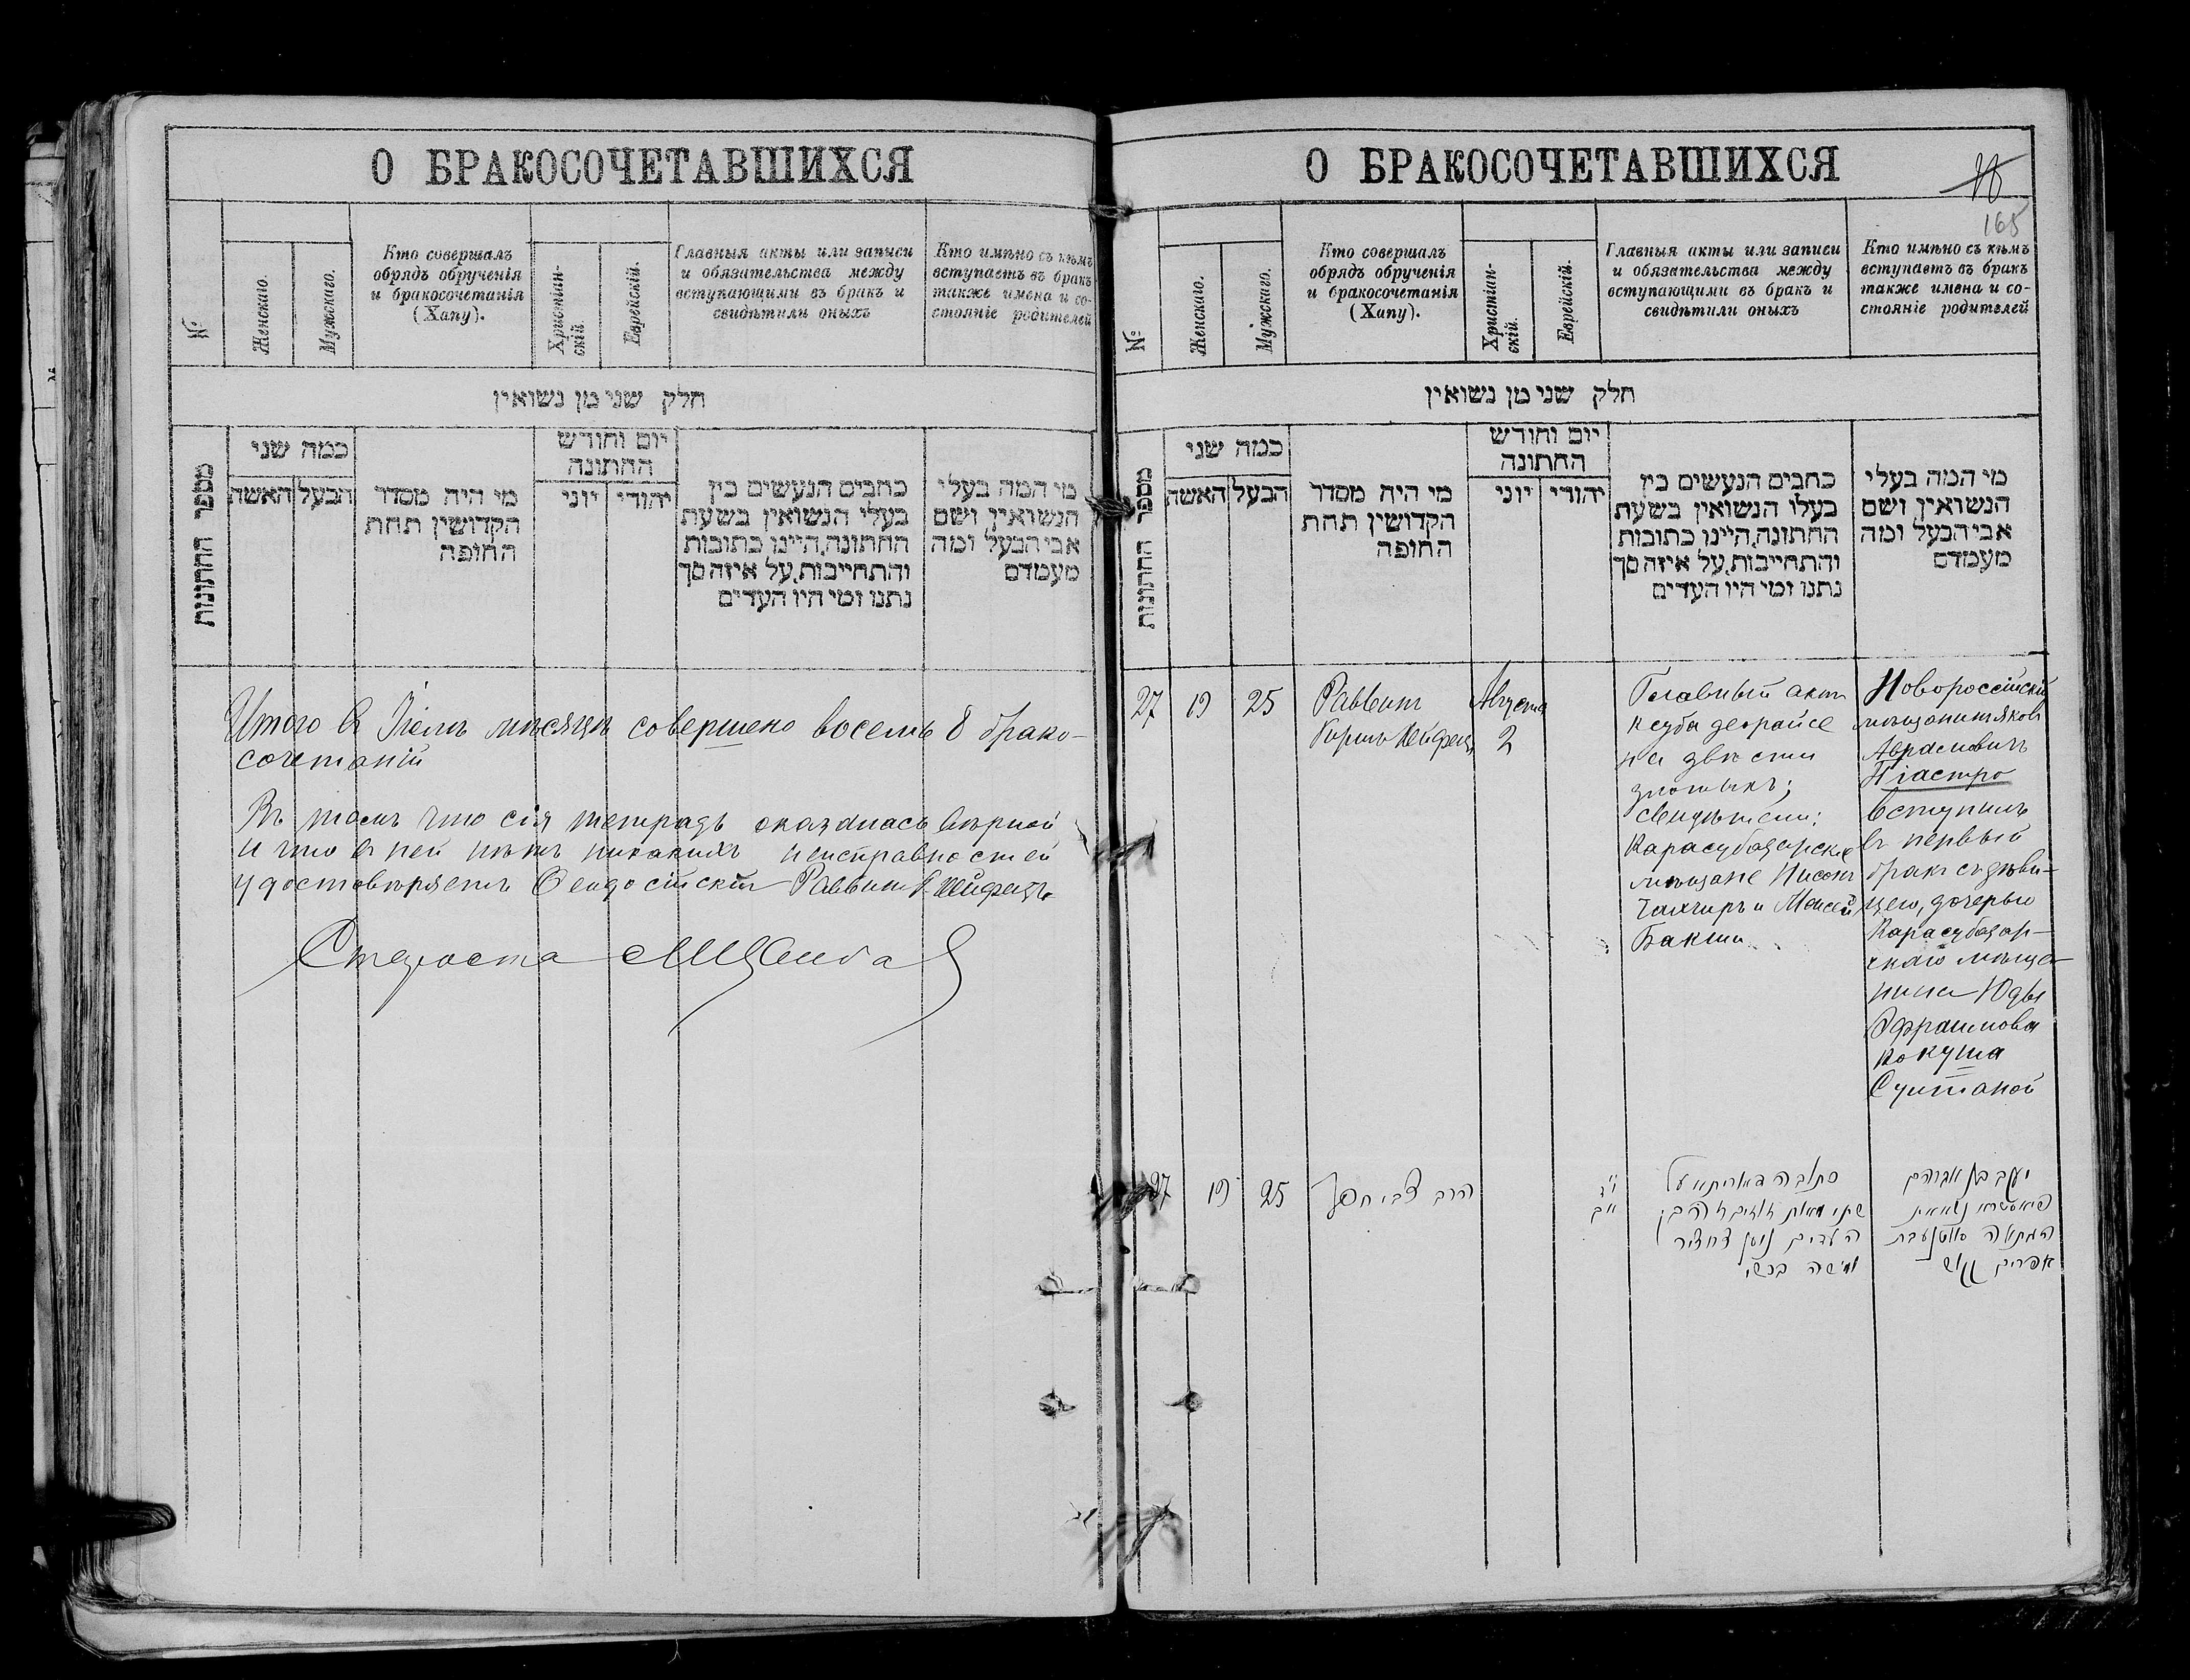 О БРАКОСОЧЕТАВШИХСЯ
№
Женскаго.
Мужскаго.
Кто совершалъ
обрядъ обрученія
и бракосочетанія
(Хапу).
Христіан-
скій.
Еврейскій.
Главныя акты или записи
и обязательства между
вступающими въ бракъ и
свидѣтили оныхъ
Кто имѣно съ кѣмъ
вступаетъ въ бракъ
также имена и со-
стояніе родителей
חלק שני מן נשואין
מספר החתונות
כמה שני
האשה
הבעל
מי היה מסדר
הקדושין תחת
החופה
יום וחודש
החתונה
יוני
יהודי
כתבים הנעשים בין
בעלי הנשואין בשעת
החתונה, היינו כתובות
והתחייבות, על איזה סך
נתנו ומי היו העדים
מי המה בעלי
הנשואין, ושם
אבי הבעל ומה
מעמדם
Итого въ Іюлѣ мѣсяцѣ совершено восемь 8 брако-
сочетаній
Въ томъ что сія тетрадь оказалась вѣрной
и что въ ней нѣтъ никакихъ неисправностей
удостовѣряетъ Ѳеодосійскій Раввинъ Г. Хейфецъ
Староста
О БРАКОСОЧЕТАВШИХСЯ
165
№
Женскаго.
Мужскаго.
Кто совершалъ
обрядъ обрученія
и бракосочетанія
(Хапу).
Христіан-
скій.
Еврейскій.
Главныя акты или записи
и обязательства между
вступающими въ бракъ и
свидѣтили оныхъ
Кто имѣно съ кѣмъ
вступаетъ въ бракъ
также имена и со-
стояніе родителей
חלק שני מן נשואין
מספר החתונות
כמה שני
האשה
הבעל
מי היה מסדר
הקדושין תחת
החופה
יום וחודש
החתונה
יוני
יהודי
כתבים הנעשים בין
בעלי הנשואין בשעת
החתונה, היינו כתובות
והתחייבות, על איזה סך
נתנו ומי היו העדים
מי המה בעלי
הנשואין, ושם
אבי הבעל ומה
מעמדם
27
19
25
Раввинъ
Гиршъ Хейфецъ
Августа
2
Главный актъ
ксуба деорайсе
на двѣсти
злотыхъ;
свидѣтели:
Карасубазарскіе
мѣщане Нисонъ
Чахчиръ и Моисей
Бакши
Новороссійскій
мѣщанинъ Яковъ
Абрамовичъ
Піастро
вступилъ
въ первый
бракъ съ дѣви-
цею, дочерью
Карасубазар-
скаго мѣща-
нина Юды
Эфраимова
Кокуша
Султаной
27
19
25
הרב צבי חפץ
כתובה דאורייתא על
שתי מאות זהב
העדים ניסן צחציר
משה בכשי
יעקב בן אברהם
פיאסטרו נשא את
הבתולה סולטנע בת
אפרים